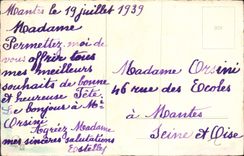 Mantes le 19 juillet 1939
Madame
Permettez-moi de
vous offrir tous
mes meilleurs
souhaits de bonne
et heureuse Fête
Le bonjour à Mr
Orsini
Agréez Madame
mes sincères salutations
Madame Orsini
46 rue des Ecoles
à Mantes
Seine et Oise